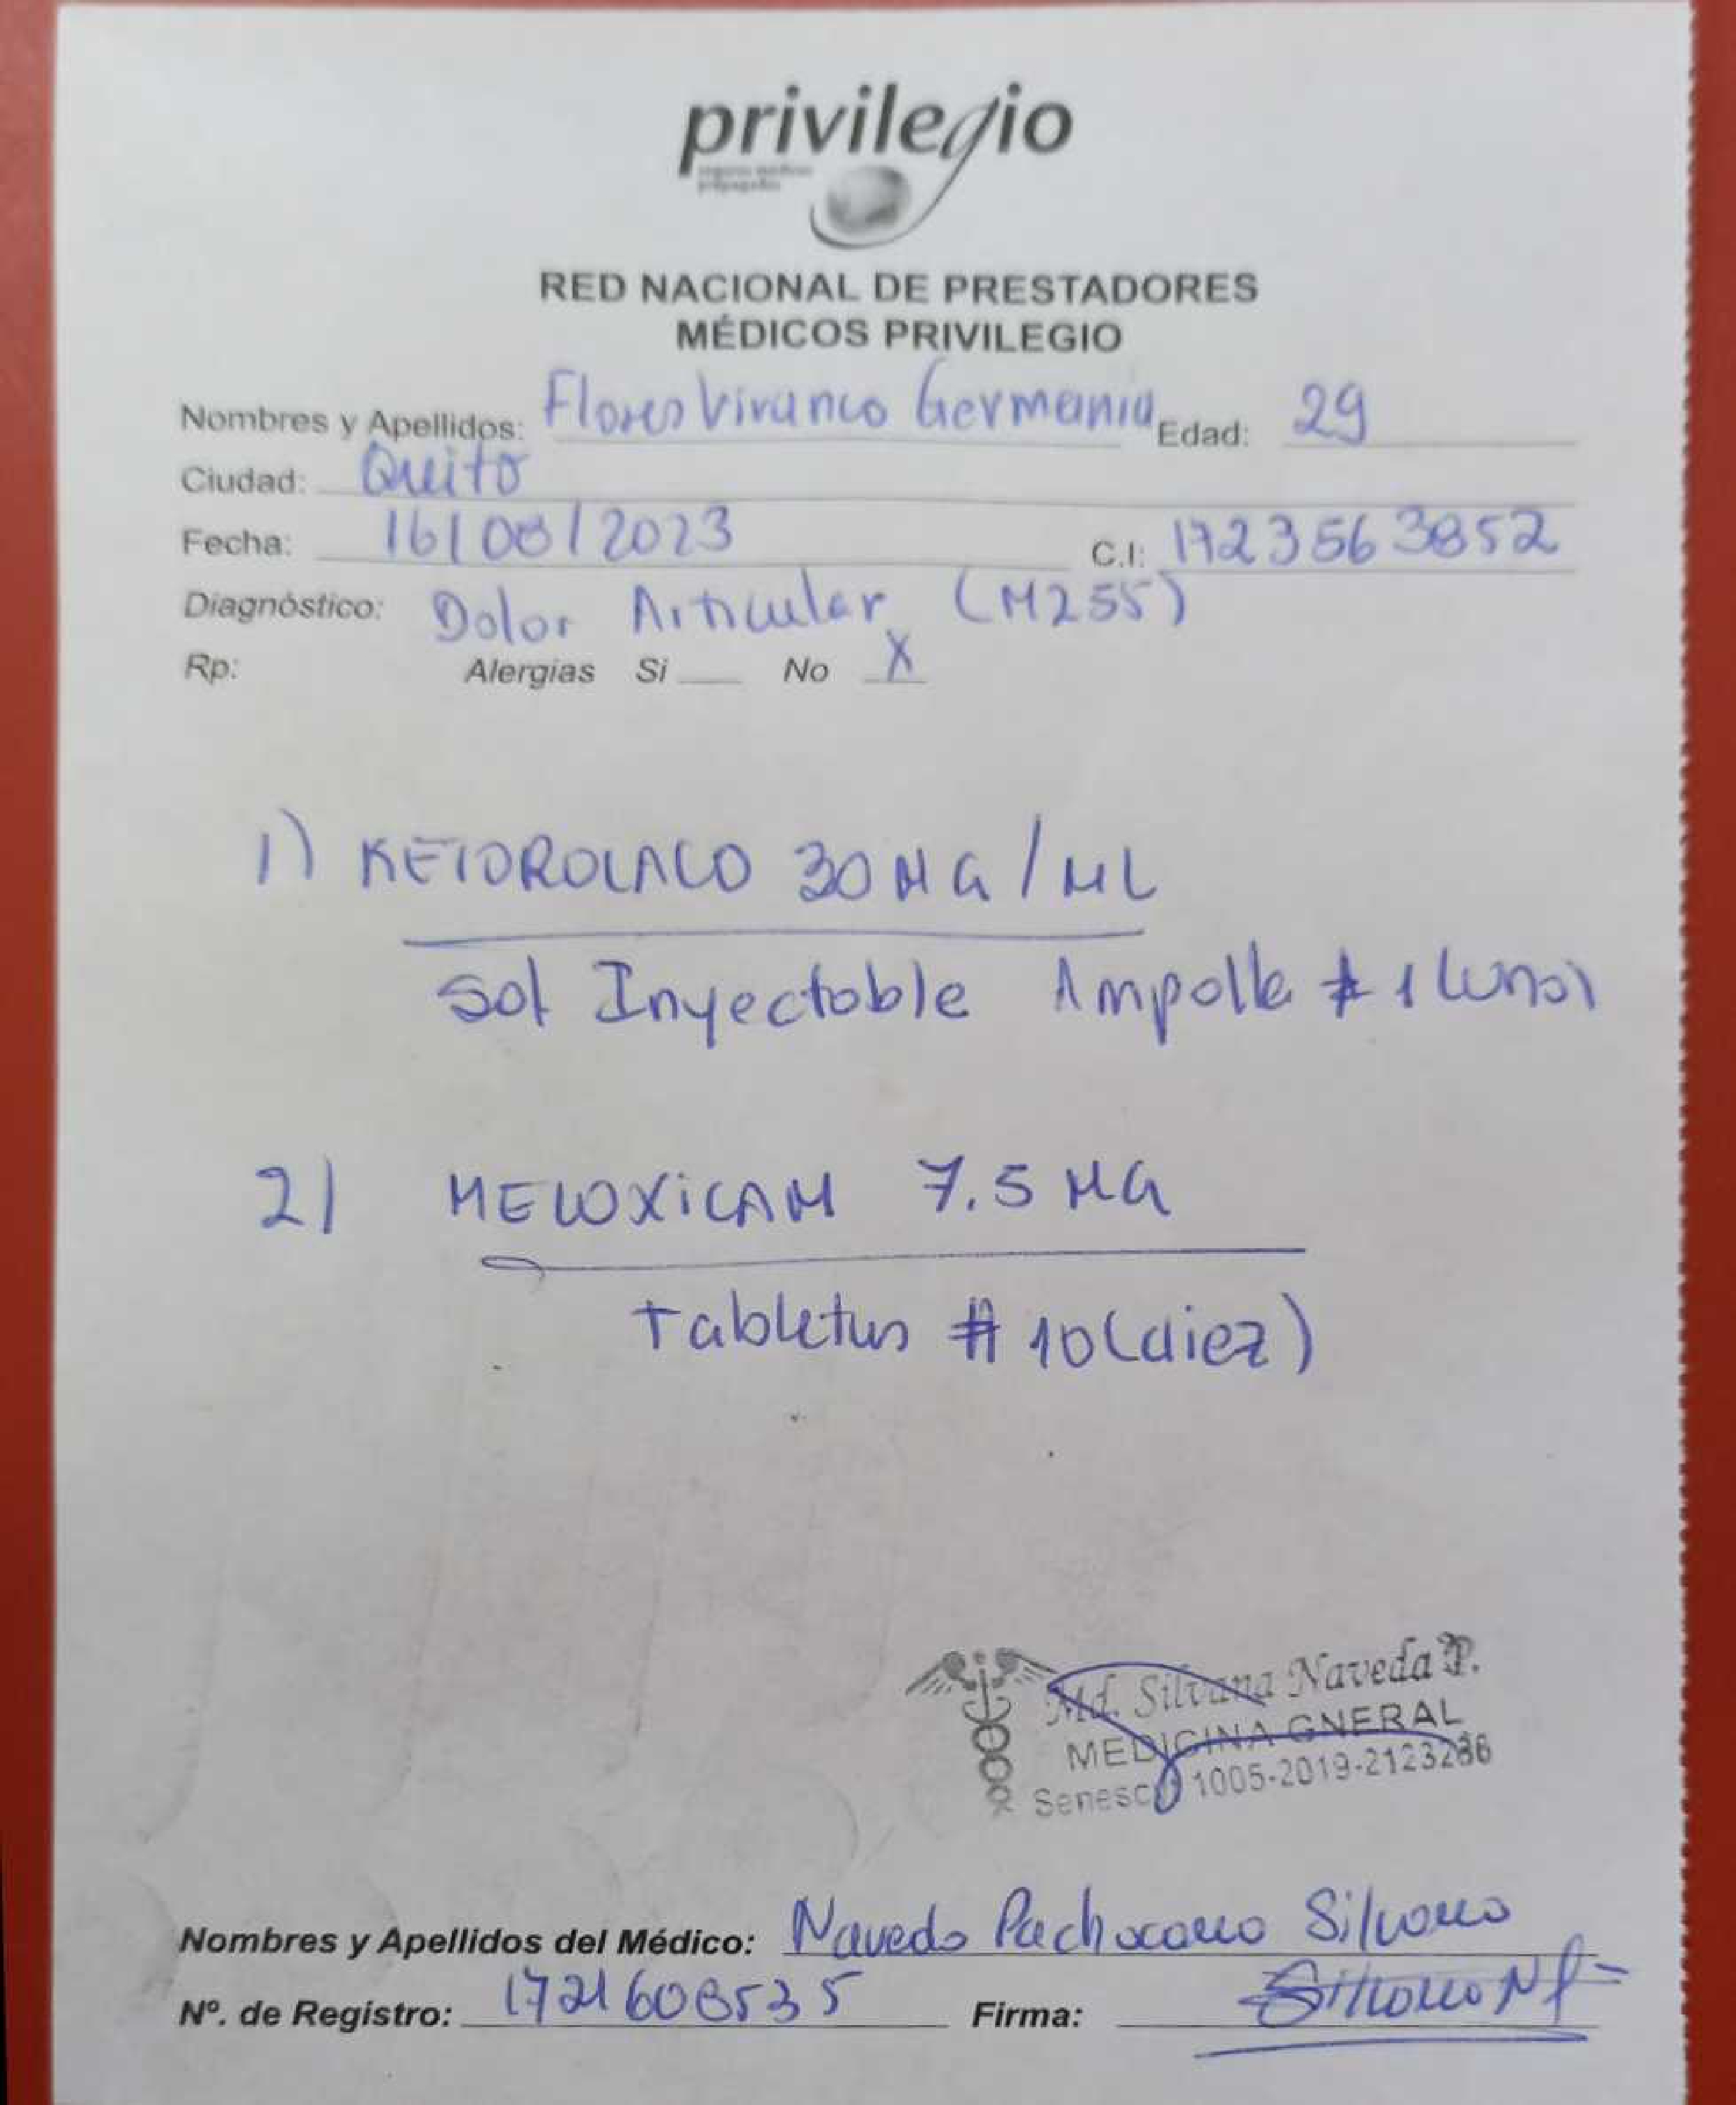 privilegio
seguros médicos
prepagados
RED NACIONAL DE PRESTADORES
MÉDICOS PRIVILEGIO
Nombres y Apellidos: Flores Vivanco Germania Edad: 29
Ciudad: Quito
Fecha: 16/08/2023 C.I: 1723563852
Diagnóstico: Dolor Articular (M255)
Rp: Alergias Si ___ No X
1) KETOROLACO 30 MG/ML
Sol Inyectable Ampolla # 1 (una)
2) MELOXICAM 7.5 MG
Tabletas # 10 (diez)
Md. Silvana Naveda P.
MEDICINA GNERAL
Senescyt 1005-2019-2123286
Nombres y Apellidos del Médico: Naveda Pachacama Silvana
Nº. de Registro: 1721608535 Firma: Silvana NP